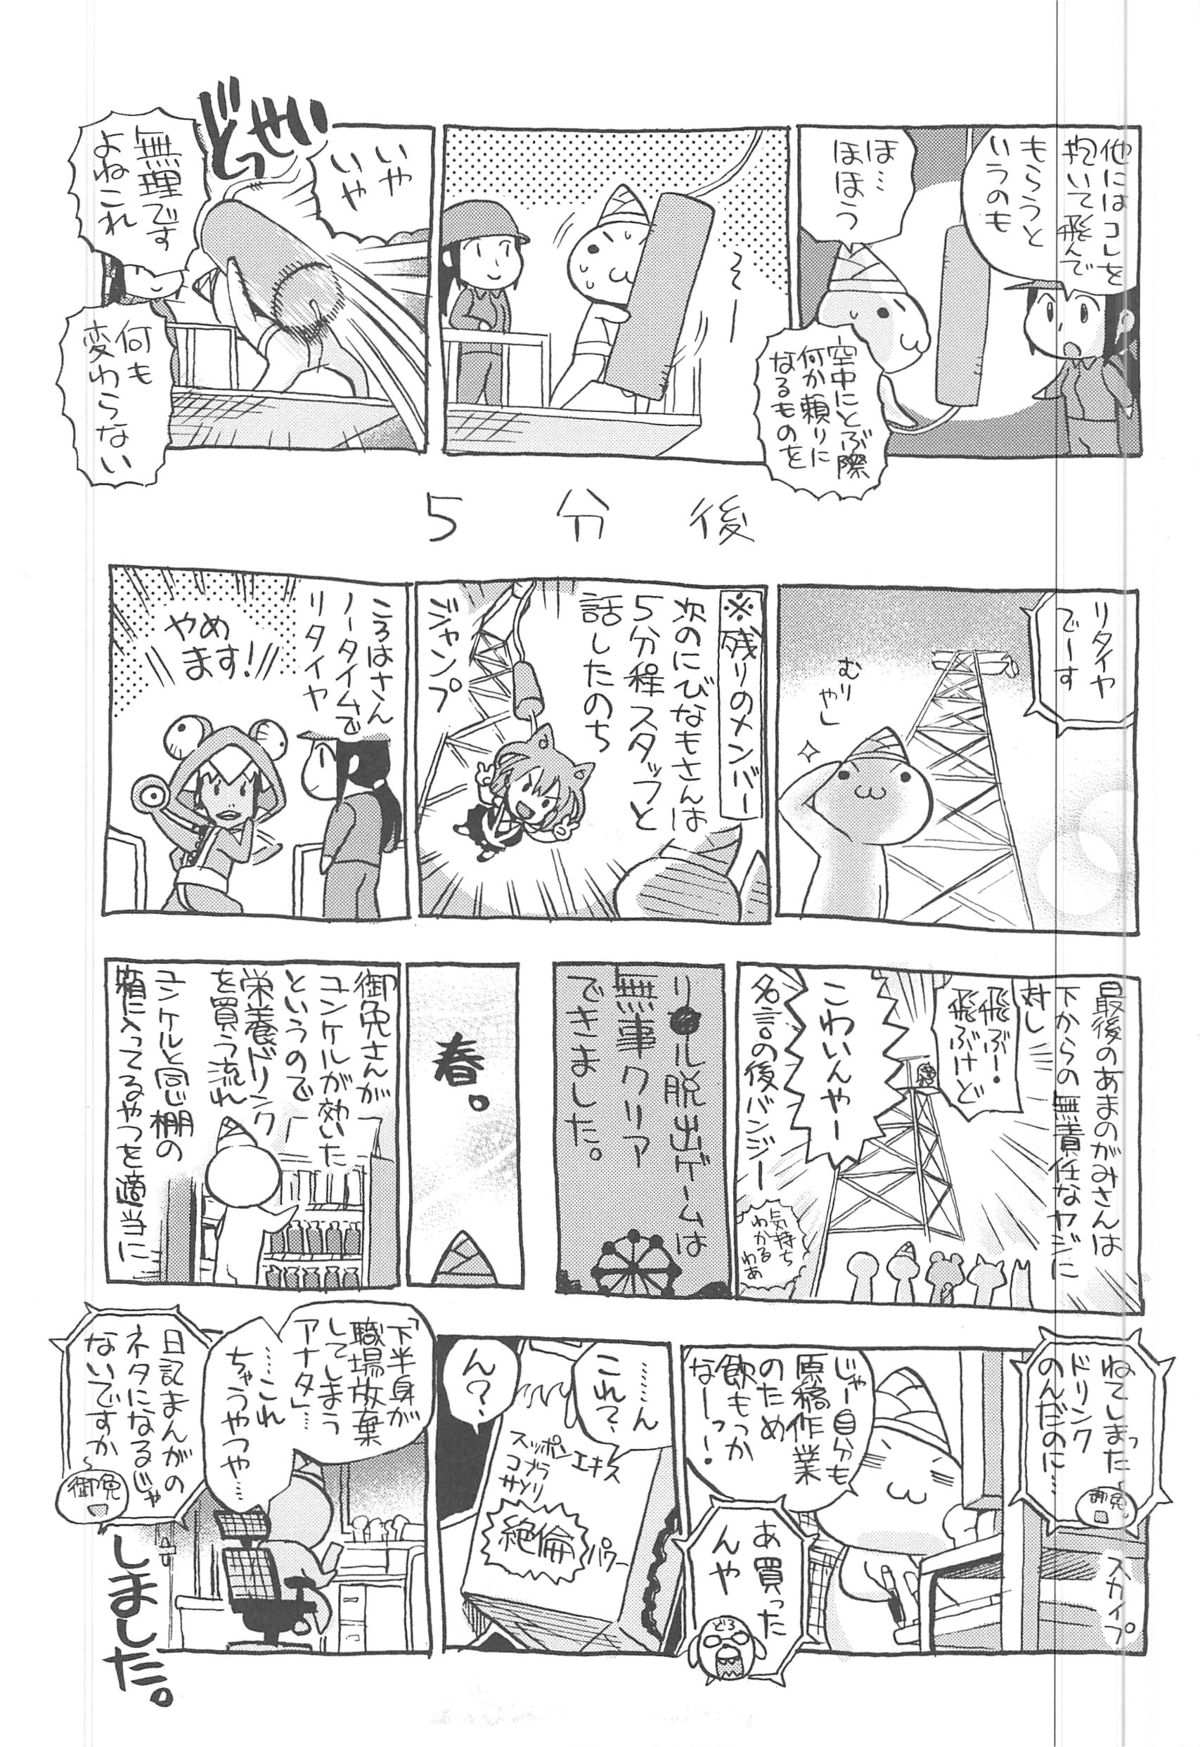 他にはコレを
抱いて飛んで
もらうと
いうのも
ほ…
ほほう
空中にとぶ際
何か頼りに
なるものを
いや
いや
どっせい
無理です
よねこれ
何も
変わらない
5分後
リタイヤ
でーす
むり
やし
※残りのメンバー
次のにびなもさんは
5分程スタッフと
話したのち
ジャンプ
ころはさん
ノータイムで
リタイヤ
やめ
ます!
最後のあまのがみさんは
下からの無責任なヤジに
対し
飛ぶ!
飛ぶけど
こわいんやー
名言。の後バンジー
気持ち
わかる
わぁ
リ●ル脱出ゲームは
無事クリア
できました。
春。
御免さんが
ユンケルが効いた
というので
栄養ドリンク
を買う流れ
ユンケルと同じ棚の
箱に入ってるやつを適当に
ねてしまった
ドリンク
のんだのに…
御免
スカイプ
じゃー自分も
原稿作業
のため
飲もっか
なーっ!
あ買った
んや
どろ
……ん
これ?
ん?
スッポンエキス
コブラ
サソリ
絶倫
パワー
「下半身が
職場放棄
してしまう
アナタ」…
……これ
ちゃうやつや…
日記まんがの
ネタになるじゃ
ないですか
御免
しました。